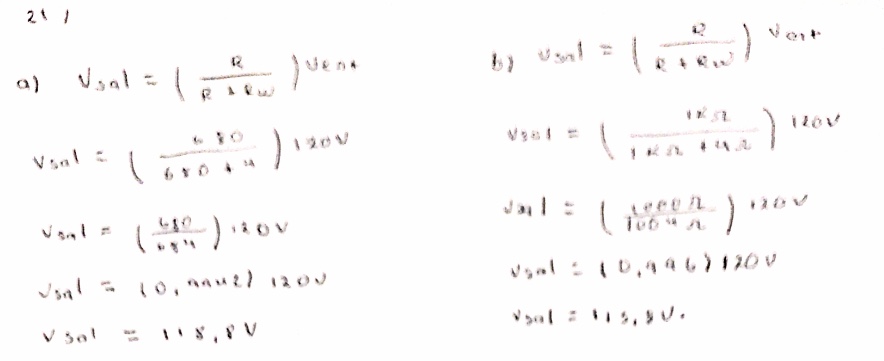 21 1
a) Vsal = ( R / R + Rw ) Vent
Vsal = ( 680 / 680 + 4 ) 120V
Vsal = ( 680 / 684 ) 120V
Vsal = (0,9942) 120V
Vsal = 118,8V
b) Vsal = ( R / R + Rw ) Vent
Vsal = ( 1KΩ / 1KΩ + 4Ω ) 120V
Vsal = ( 1000Ω / 1004Ω ) 120V
Vsal = (0,996) 120V
Vsal = 115,8V.